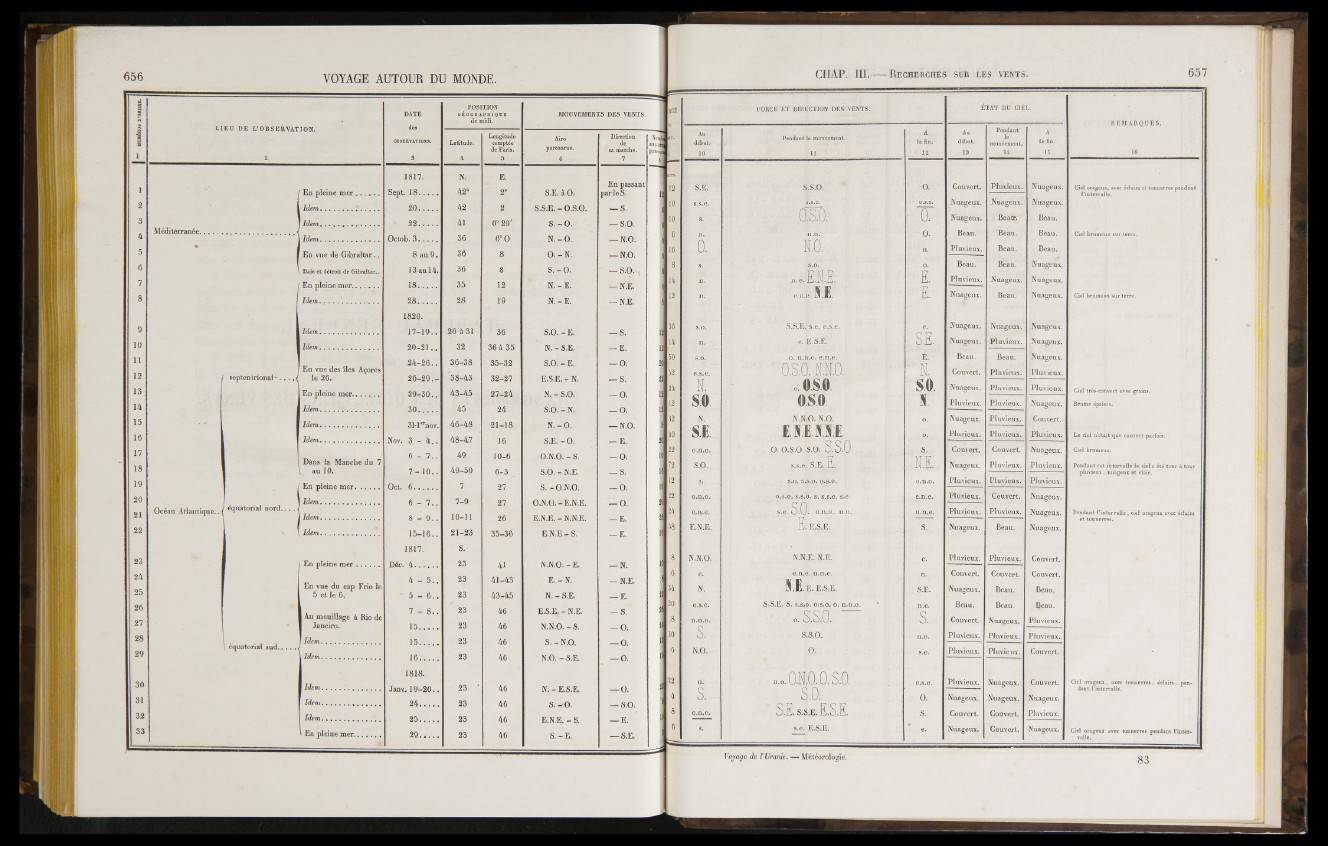 656
VOYAGE AUTOUR DU MONDE.
LIEU DE L'OBSERVATION.
DATE des OBSERVATIONS.
POSITION GÉOGRAPHIQUE de midi.
Latitude.
Longitude comptée de Paris.
MOUVEMENTS DES VENTS.
Aire parcourue.
Direction de sa marche.
1 2 3 4 5 6 7
1817. N. E.
Méditerranée.
1 En pleine mer Sept. 18 42° 2° S.E. à O. En passant par le S.
2 Idem 20 42 2 S.S.E. - O.S.O. — S.
3 Idem 22 41 0° 29' S. - O. — S.O.
4 Idem Octob. 3 36 6° O N. - O. — N.O.
5 En vue de Gibraltar 8 au 9. 36 8 O. - N. — N.O.
6 Baie et détroit de Gibraltar 13 au 14. 36 8 S. - O. — S.O.
Océan Atlantique.
septentrional
7 En pleine mer 18 35 12 N. - E. — N.E.
8 Idem 28 28 19 N. - E. — N.E.
1820.
9 Idem 17-19 26 à 31 36 S.O. - E. — S.
10 Idem 20-21 32 36 à 35 N. - S.E. — E.
11 En vue des îles Açores le 26. 24-26 36-38 35-32 S.O. - E. — O.
12 26-29 38-43 32-27 E.S.E. - N. — S.
13 En pleine mer 29-30 43-45 27-24 N. - S.O. — O.
14 Idem 30 45 24 S.O. - N. — O.
15 Idem 31-1er nov. 46-48 21-18 N. - O. — N.O.
16 Idem Nov. 3 - 4 48-47 16 S.E. - O. — E.
17 Dans la Manche du 7 au 10. 6 - 7 49 10-6 O.N.O. - S. — O.
18 7 - 10 49-50 6-3 S.O. - N.E. — S.
équatorial nord
19 En pleine mer Oct. 6 7 27 S. - O.N.O. — O.
20 Idem 6 - 7 7-9 27 O.N.O. - E.N.E. — O.
21 Idem 8 - 9 10-11 26 E.N.E. - N.N.E. — E.
22 Idem 15-16 21-23 35-36 E.N.E - S. — E.
1817. S.
équatorial sud
23 En pleine mer Déc. 4 23 41 N.N.O. - E. — N.
24 En vue du cap Frio le 5 et le 6. 4 - 5 23 41-43 E. - N. — N.E.
25 5 - 6 23 43-45 N. - S.E. — E.
26 Au mouillage à Rio de Janeiro. 7 - 8 23 46 E.S.E. - N.E. — S.
27 15 23 46 N.N.O. - S. — O.
28 Idem 15 23 46 S. - N.O. — O.
29 Idem 16 23 46 N.O. - S.E. — O.
1818.
30 Idem Janv. 19-20 23 46 N. - E.S.E. — O.
31 Idem 24 23 46 S. - O. — S.O.
32 Idem 25 23 46 E.N.E. - S. — E.
33 En pleine mer 29 23 46 S. - E. — S.E.
CHAP. III. — RECHERCHES SUR LES VENTS.
657
FORCE ET DIRECTION DES VENTS.
Au début.
Pendant le mouvement.
A la fin.
ÉTAT DU CIEL.
Au début.
Pendant le mouvement.
A la fin.
REMARQUES.
10 11 12 13 14 15 16
12 S.E. S.S.O. O. Couvert. Pluvieux. Nuageux. Ciel orageux, avec éclairs et tonnerres pendant l'intervalle.
10 s.s.e. s.s.o. o.s.o. Nuageux. Nuageux. Nuageux.
10 s. O.S.O. O. Nuageux. Beau. Beau.
6 n. n.o. O. Beau. Beau. Beau. Ciel brumeux sur terre.
16 O. N.O. n. Pluvieux. Beau. Beau.
8 s. s.o. o. Beau. Beau. Nuageux.
14 n. n.e. E.N.E. E. Pluvieux. Nuageux. Nuageux.
12 n. e.n.e. N.E. E. Nuageux. Beau. Nuageux. Ciel brumeux sur terre.
36 s.o. S.S.E. s.e. e.s.e. e. Nuageux. Nuageux. Nuageux.
14 n. e. E.S.E. S.E. Nuageux. Pluvieux. Nuageux.
50 s.o. o. n. n.e. e.n.e. E. Beau. Beau. Nuageux.
52 e.s.e. O.S.O. N.N.O. N. Couvert. Pluvieux. Pluvieux.
14 N. o. O.S.O. S.O. Nuageux. Pluvieux. Pluvieux. Ciel très-couvert avec grains.
12 S.O. O.S.O. N. Pluvieux. Pluvieux. Nuageux. Brume épaisse.
42 N. N.N.O. N.O. o. Nuageux. Pluvieux. Couvert.
40 S.E. E.N.E. N.N.E. o. Pluvieux. Pluvieux. Pluvieux. Le ciel n'était que couvert parfois.
22 o.n.o. O. O.S.O. S.O. S.S.O. S. Couvert. Couvert. Nuageux. Ciel brumeux.
72 S.O. s.s.e. S.E. E. N.E. Nuageux. Pluvieux. Pluvieux. Pendant cet intervalle le ciel a été tour à tour pluvieux, nuageux et clair.
12 s. s.o. s.s.o. o.s.o. o.n.o. Pluvieux. Pluvieux. Pluvieux.
22 o.n.o. o.s.o. s.s.o. s. s.s.e. s.e. e.n.e. Pluvieux. Couvert. Nuageux.
24 e.n.e. s.e. S.O. o.n.o. n.o. n.n.e. Pluvieux. Pluvieux. Nuageux. Pendant l'intervalle, ciel orageux avec éclairs et tonnerres.
38 E.N.E. E. E.S.E. S. Nuageux. Beau. Nuageux.
8 N.N.O. N.N.E. N.E. e. Pluvieux. Pluvieux. Couvert.
6 e. e.n.e. n.n.e. n. Couvert. Couvert. Couvert.
34 N. N.E. E. E.S.E. S.E. Nuageux. Beau. Beau.
30 e.s.e. S.S.E. S. s.s.o. o.s.o. o. n.n.o. n.e. Beau. Beau. Beau.
8 n.n.o. o. S.S.O. S. Couvert. Nuageux. Pluvieux.
10 S. S.S.O. n.o. Pluvieux. Pluvieux. Pluvieux.
6 N.O. O. s.e. Pluvieux. Pluvieux. Couvert.
32 n. n.o. O.N.O. O. S.O. e.s.e. Pluvieux. Nuageux. Couvert. Ciel orageux, avec tonnerres, éclairs, pendant l'intervalle.
4 S. S.O. O. Nuageux. Nuageux. Nuageux.
8 e.n.e. S.E. S.S.E. E.S.E. S. Couvert. Couvert. Pluvieux.
6 s. s.e. E.S.E. e. Nuageux. Couvert. Nuageux. Ciel orageux avec tonnerres pendant l'intervalle.
Voyage de l'Uranie. — Météorologie.
83